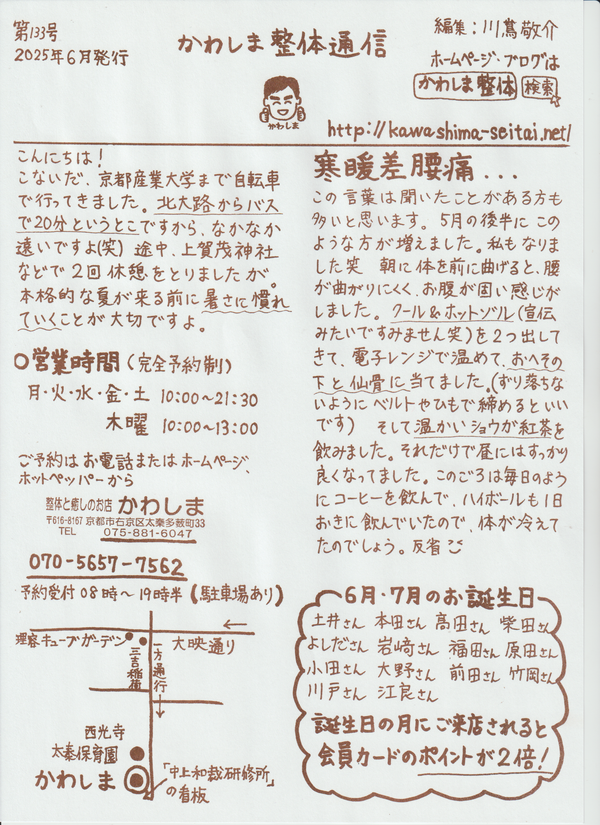 第133号
2025年6月発行
かわしま整体通信
編集：川嶌敬介
ホームページ・ブログは
かわしま整体 検索
かわしま
http://kawashima-seitai.net/
こんにちは！
こないだ、京都産業大学まで自転車
で行ってきました。北大路からバス
で20分というとこですから、なかなか
遠いですよ(笑) 途中、上賀茂神社
などで2回休憩をとりましたが。
本格的な夏が来る前に暑さに慣れ
ていくことが大切ですよ。
○営業時間(完全予約制)
月・火・水・金・土 10:00〜21:30
木曜 10:00〜13:00
ご予約はお電話またはホームページ、
ホットペッパーから
整体と癒しのお店 かわしま
〒616-8167 京都市右京区太秦多薮町33
TEL 075-881-6047
070-5657-7562
予約受付08時〜19時半(駐車場あり)
理容キューブガーデン
大映通り
←
三吉稲荷
一方通行
→
西光寺
太秦保育園
かわしま
「中上和裁研修所」
の看板
寒暖差腰痛...
この言葉は聞いたことがある方も
多いと思います。5月の後半にこの
ような方が増えました。私もなりま
した笑 朝に体を前に曲げると、腰
が曲がりにくく、お腹が固い感じが
しました。クール&ホットゾル(宣伝
みたいですみません笑)を2つ出して
きて、電子レンジで温めて、おへその
下と仙骨に当てました。(ずり落ちな
いようにベルトやひもで締めるといい
です) そして温かいショウガ紅茶を
飲みました。それだけで昼にはすっかり
良くなってました。このごろは毎日のよう
にコーヒーを飲んで、ハイボールも1日
おきに飲んでいたので、体が冷えて
たのでしょう。反省
6月・7月のお誕生日
土井さん 本田さん 髙田さん 柴田さん
よしださん 岩﨑さん 福田さん 原田さん
小田さん 大野さん 前田さん 竹岡さん
川戸さん 江良さん
誕生日の月にご来店されると
会員カードのポイントが2倍！